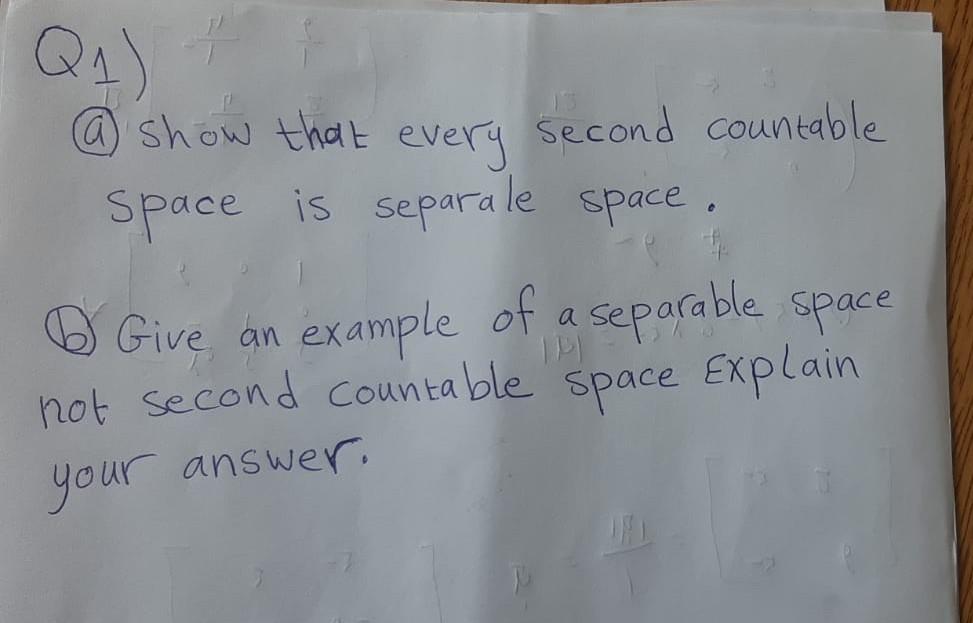 Q1)
(a) show that every second countable
space is separale space.
(b) Give an example of a separable space
not second countable space Explain
your answer.